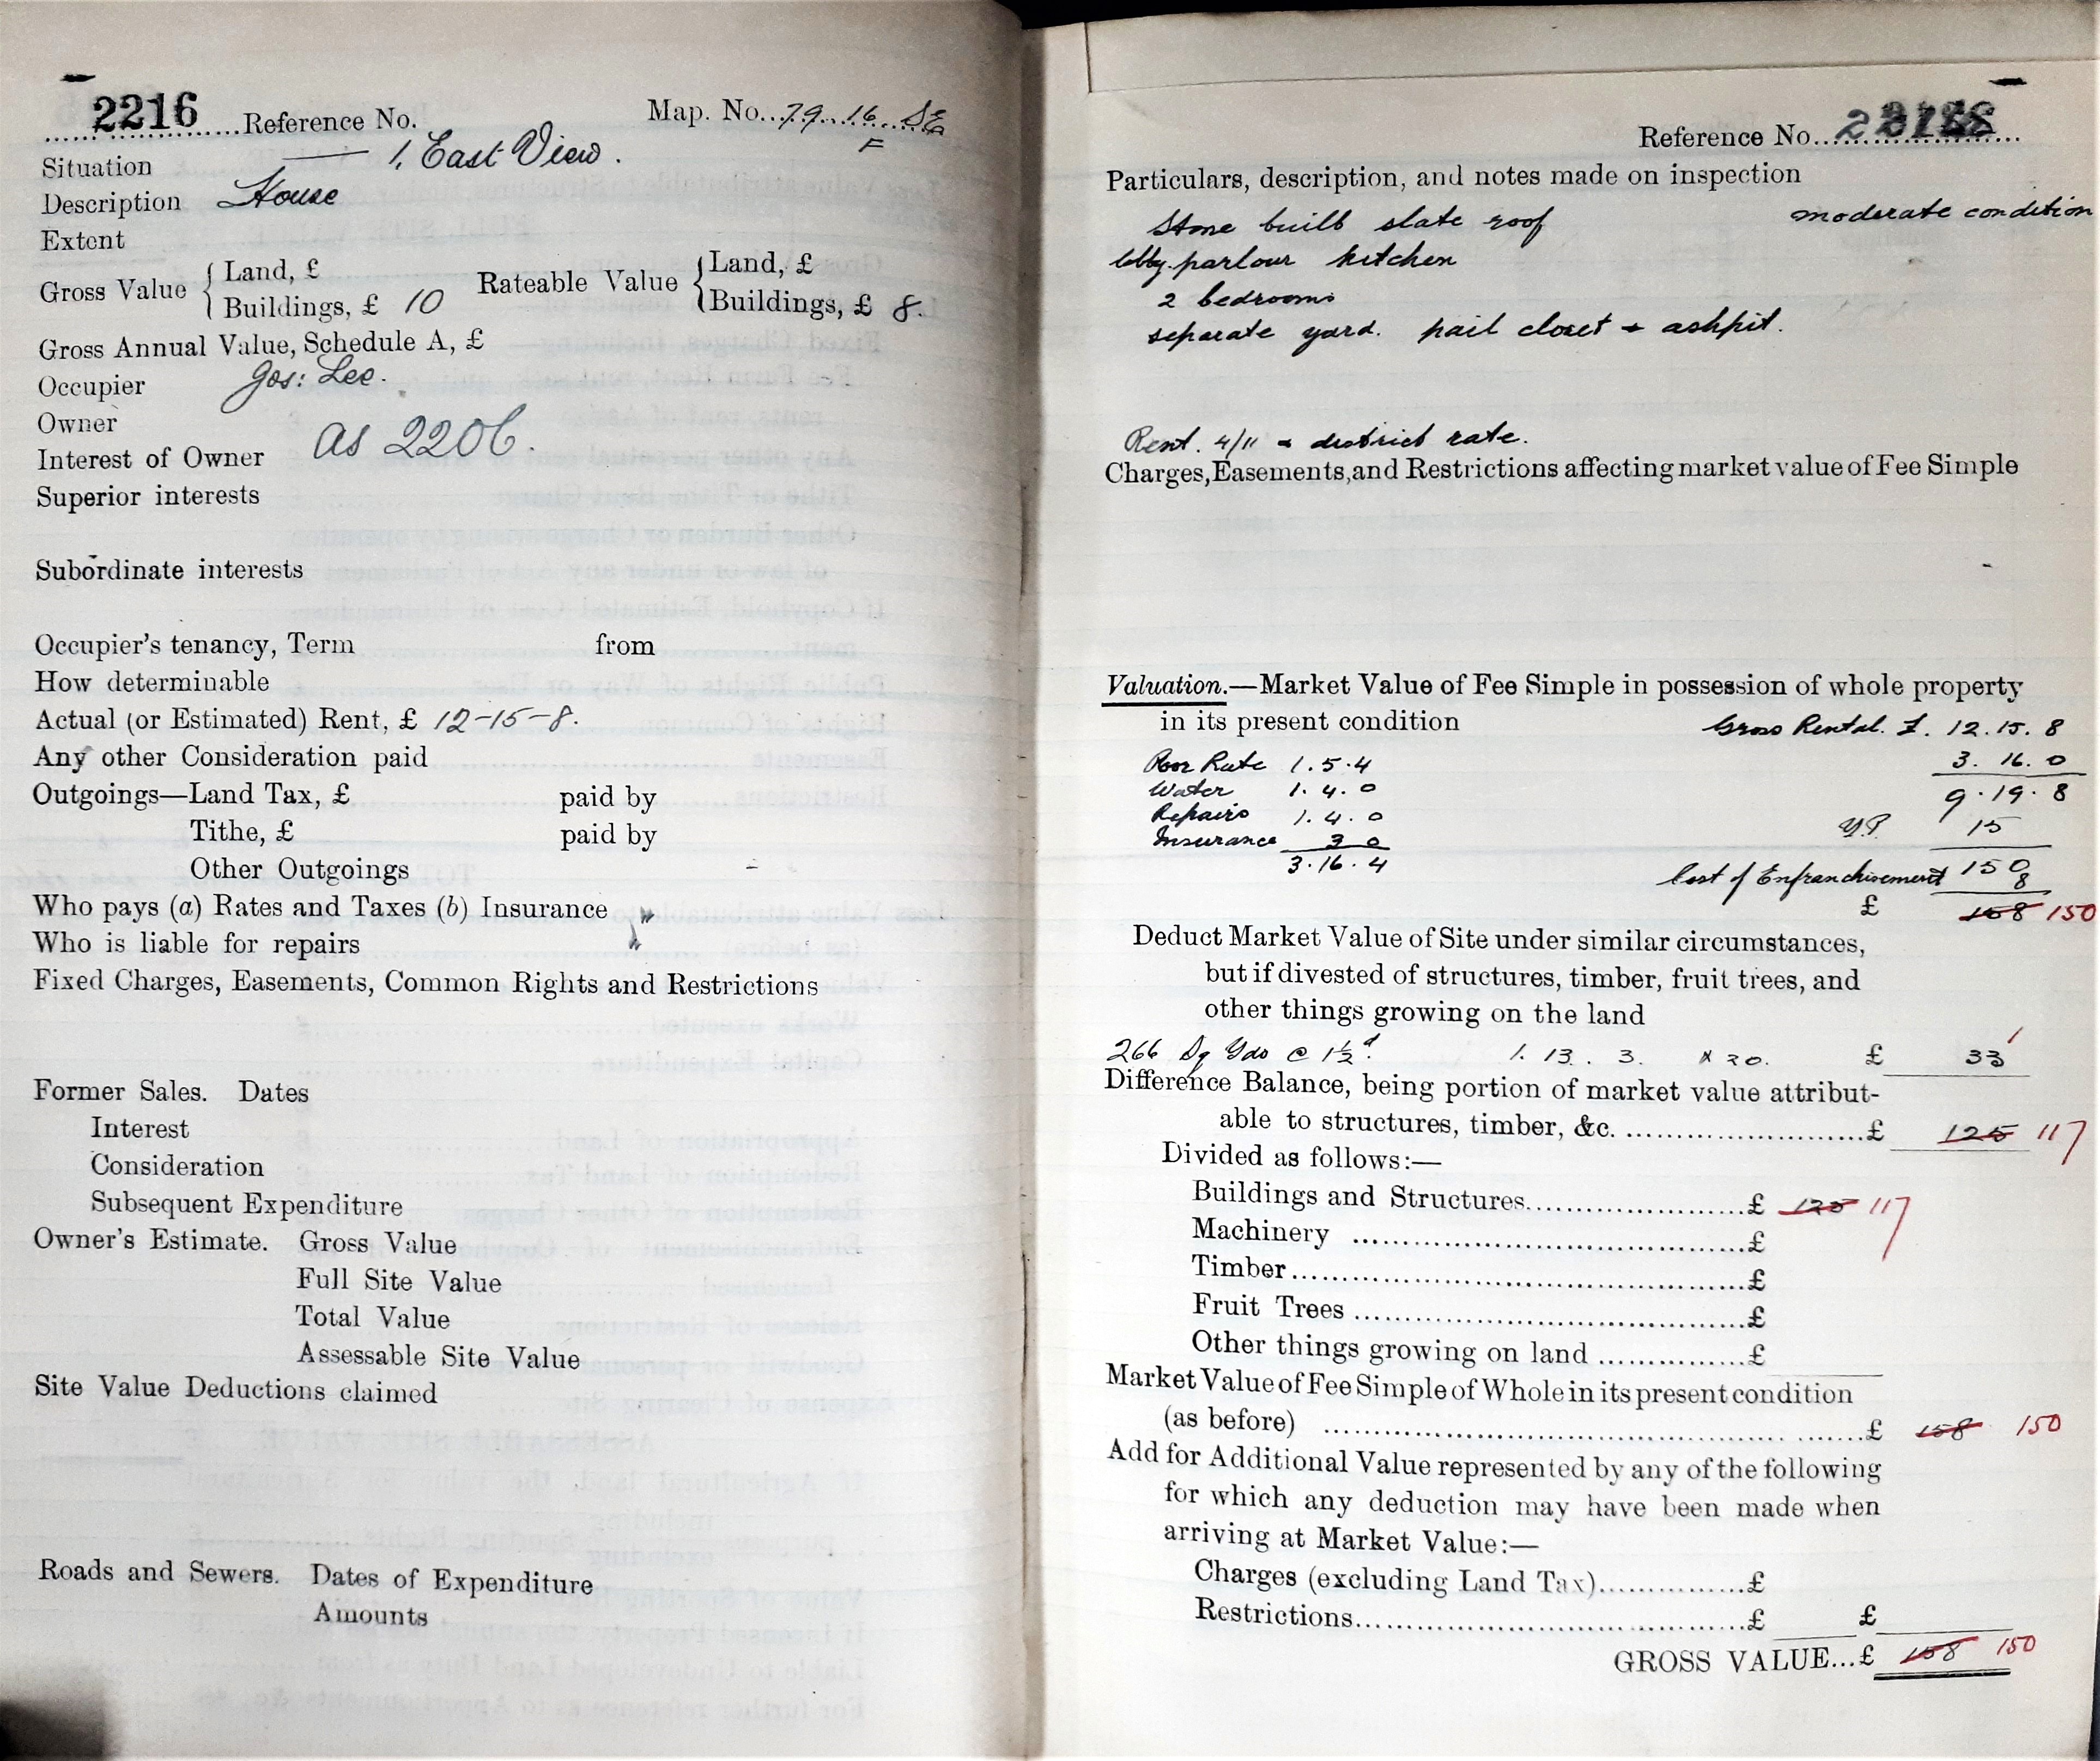 2216 Reference No. Map. No. 79. 16 SE
F
Situation 1, East View.
Description House
Extent
Gross Value { Land, £ Rateable Value { Land, £
Buildings, £ 10 Buildings, £ 8.
Gross Annual Value, Schedule A, £
Occupier Jos: Lee.
Owner
Interest of Owner as 2206.
Superior interests
Subordinate interests
Occupier's tenancy, Term from
How determinable
Actual (or Estimated) Rent, £ 12-15-8.
Any other Consideration paid
Outgoings—Land Tax, £ paid by
Tithe, £ paid by
Other Outgoings
Who pays (a) Rates and Taxes (b) Insurance
Who is liable for repairs
Fixed Charges, Easements, Common Rights and Restrictions
Former Sales. Dates
Interest
Consideration
Subsequent Expenditure
Owner's Estimate. Gross Value
Full Site Value
Total Value
Assessable Site Value
Site Value Deductions claimed
Roads and Sewers. Dates of Expenditure
Amounts
Reference No.
Particulars, description, and notes made on inspection
Stone built slate roof moderate condition
lobby. parlour kitchen
2 bedrooms
separate yard. pail closet + ashpit.
Rent. 4/11 + district rate.
Charges, Easements, and Restrictions affecting market value of Fee Simple
Valuation.—Market Value of Fee Simple in possession of whole property
in its present condition Gross Rental. £. 12. 15. 8
Poor Rate 1. 5. 4 3. 16. 0
Water 1. 4. 0 9. 19. 8
Repairs 1. 4. 0 Y.P. 15
Insurance 3 0
3. 16. 4 150
Cost of Enfranchisement 8
£ 158 150
Deduct Market Value of Site under similar circumstances,
but if divested of structures, timber, fruit trees, and
other things growing on the land
266 Sq Yds @ 1½d. 1. 13. 3. x 20. £ 33
Difference Balance, being portion of market value attribut-
able to structures, timber, &c. £ 125 117
Divided as follows:—
Buildings and Structures £ 125 117
Machinery £
Timber £
Fruit Trees £
Other things growing on land £
Market Value of Fee Simple of Whole in its present condition
(as before) £ 158 150
Add for Additional Value represented by any of the following
for which any deduction may have been made when
arriving at Market Value:—
Charges (excluding Land Tax) £
Restrictions £ £
GROSS VALUE...£ 158 150